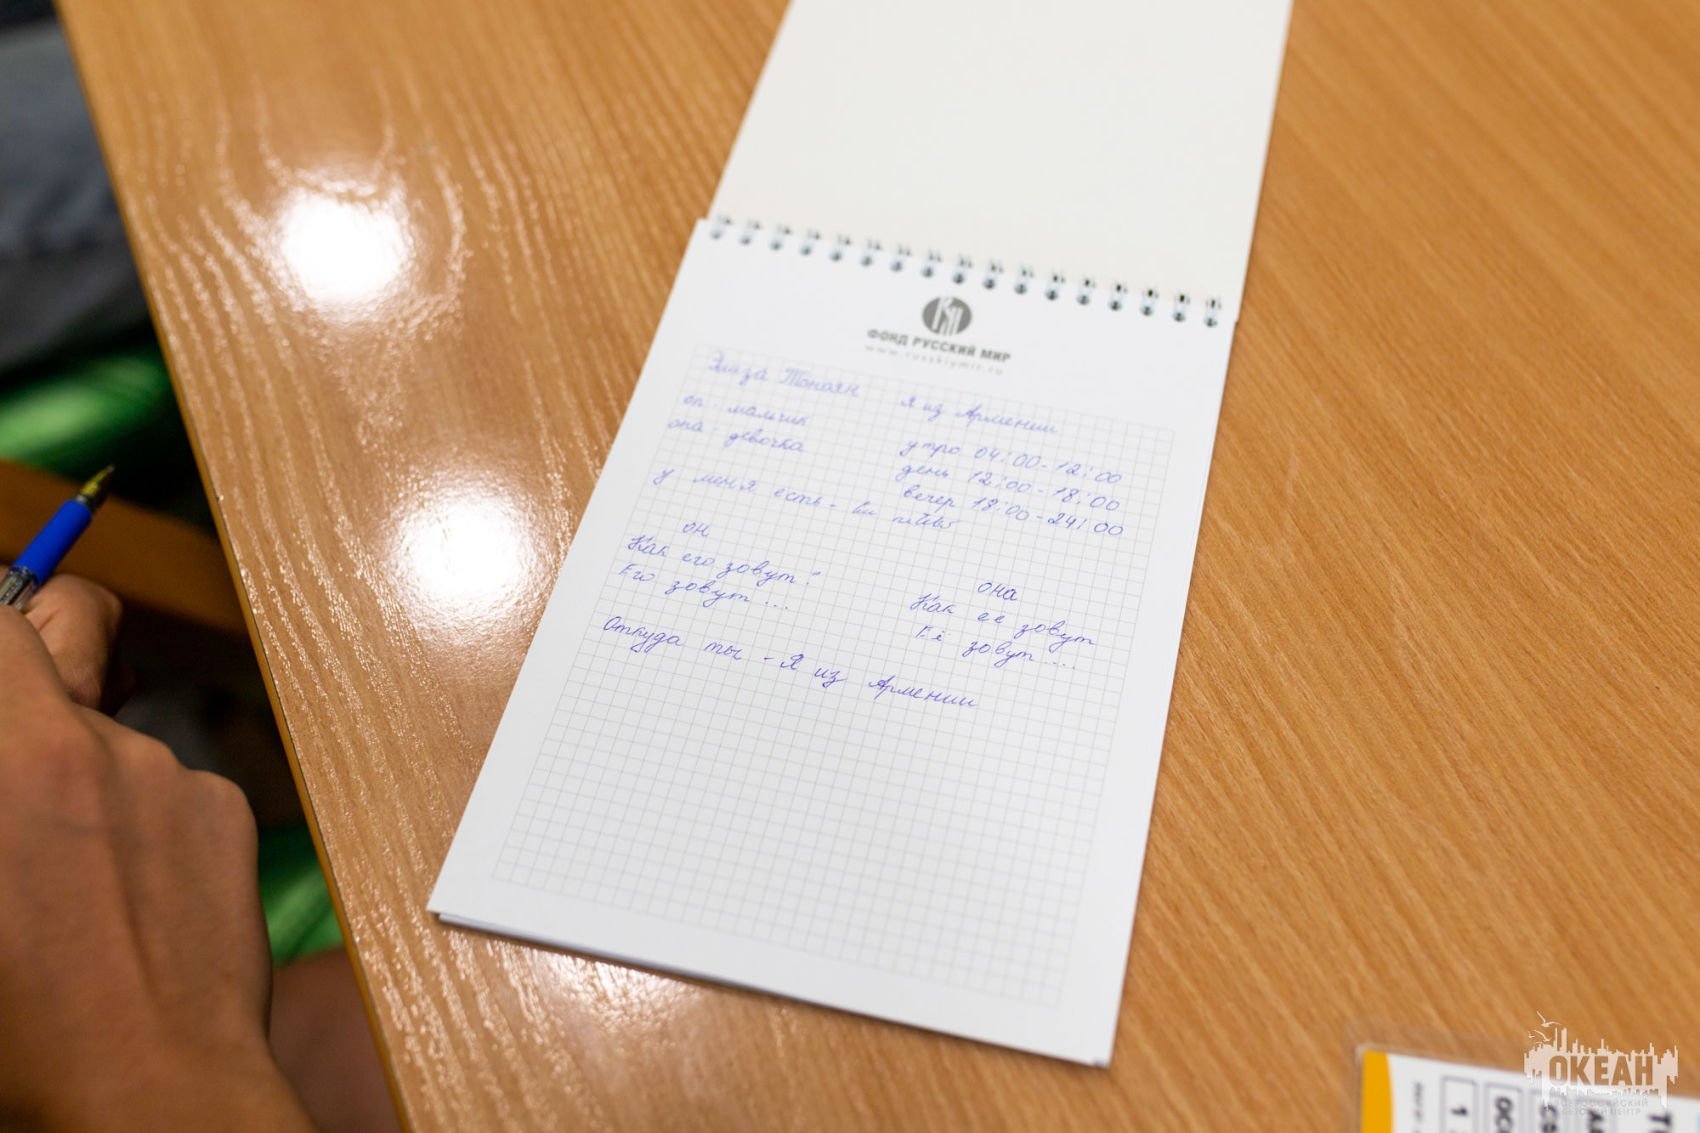 ФОНД РУССКИЙ МИР
www.russkiymir.ru
Тоноян
я из Армении
он - мальчик
она - девочка
утро 04:00-12:00
день 12:00-18:00
вечер 18:00-24:00
У меня есть -
он
Как его зовут?
Его зовут ...
она
Как её зовут
Её зовут ....
Откуда ты - Я из Армении
ОКЕАН
ВСЕРОССИЙСКИЙ
ДЕТСКИЙ ЦЕНТР